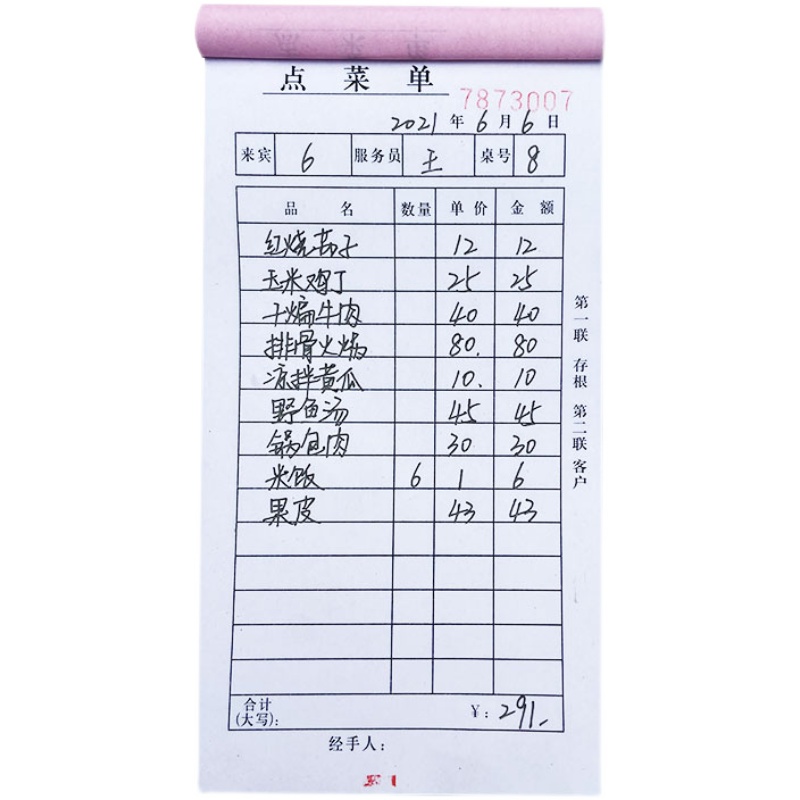 点菜单
7873007
2021年6月6日
来宾 6 服务员 王 桌号 8
品名 数量 单价 金额
红烧茄子 12 12
玉米鸡丁 25 25
干煸牛肉 40 40
排骨火锅 80. 80
凉拌黄瓜 10. 10
野鱼汤 45 45
锅包肉 30 30
米饭 6 1 6
果皮 43 43
合计
(大写): ¥: 291.
经手人:
第一联 存根 第二联 客户